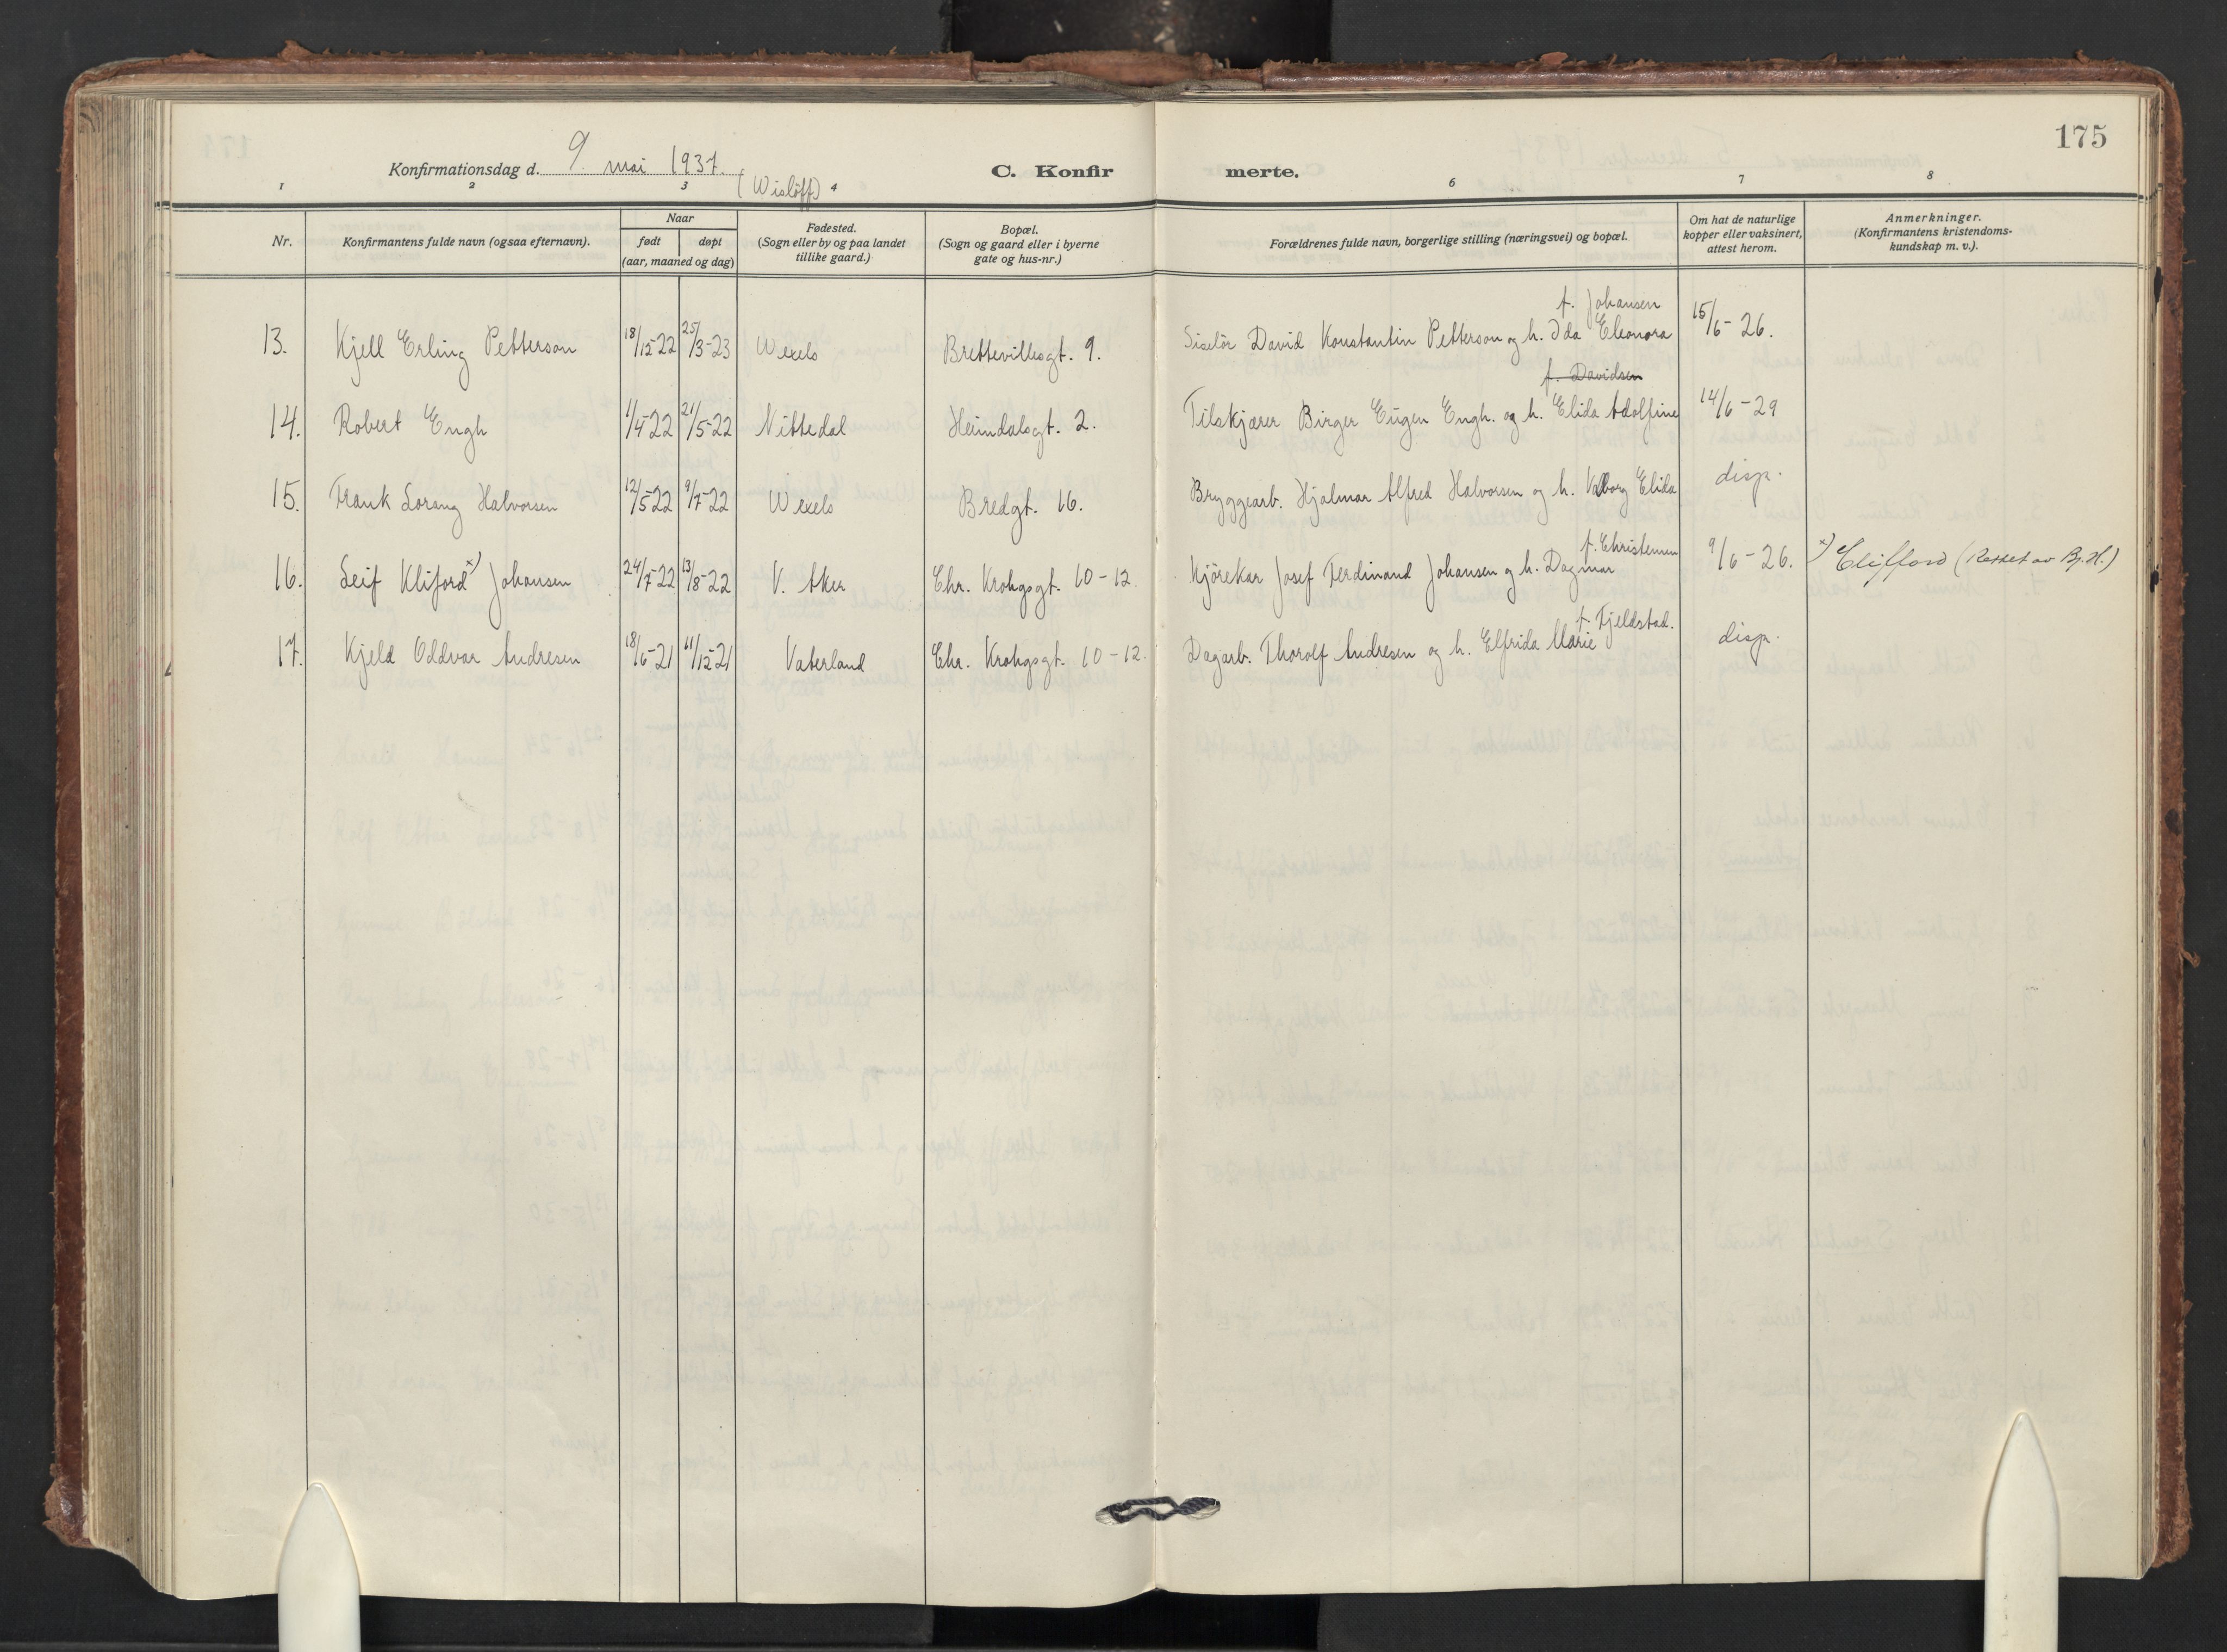 175
Konfirmationsdag d. 9. mai 1937.
(Wisløff)
C. Konfirmerte.
1 2 3 4 6 7 8
Nr.
Konfirmantens fulde navn (ogsaa efternavn).
Naar
født døpt
(aar, maaned og dag)
Fødested.
(Sogn eller by og paa landet
tillike gaard.)
Bopæl.
(Sogn og gaard eller i byerne
gate og hus-nr.)
Forældrenes fulde navn, borgerlige stilling (næringsvei) og bopæl.
Om hat de naturlige
kopper eller vaksinert,
attest herom.
Anmerkninger.
(Konfirmantens kristendoms-
kundskap m. v.).
f. Johansen
13. Kjell Erling Petterson 18/12-22 25/3-23 Wexels Brettevillesgt. 9. Siselör David Konstantin Petterson og h. Ida Eleonora 15/6-26.
f. Davidsen
14. Robert Engh 1/4-22 21/5-22 Nittedal Heimdalsgt. 2. Tilskjærer Birger Eugen Engh. og h. Elida Adolfine 14/6-29
15. Frank Lorang Halvorsen 12/5-22 9/7-22 Wexels Bredgt. 16. Bryggearb. Hjalmar Alfred Halvorsen og h. Valborg Elida disp.
f. Christensen
16. Leif Kliford x) Johansen 24/7-22 13/8-22 V. Aker Chr. Krohgsgt. 10-12. Kjörekar Josef Ferdinand Johansen og h. Dagmar 9/6-26. x) Clifford (Rettet av Bj.H.)
f. Fjeldstad.
17. Kjeld Oddvar Andresen 18/6-21 11/12-21 Vaterland Chr. Krohgsgt. 10-12. Dagarb. Thorolf Andresen og h. Elfrida Marie disp.